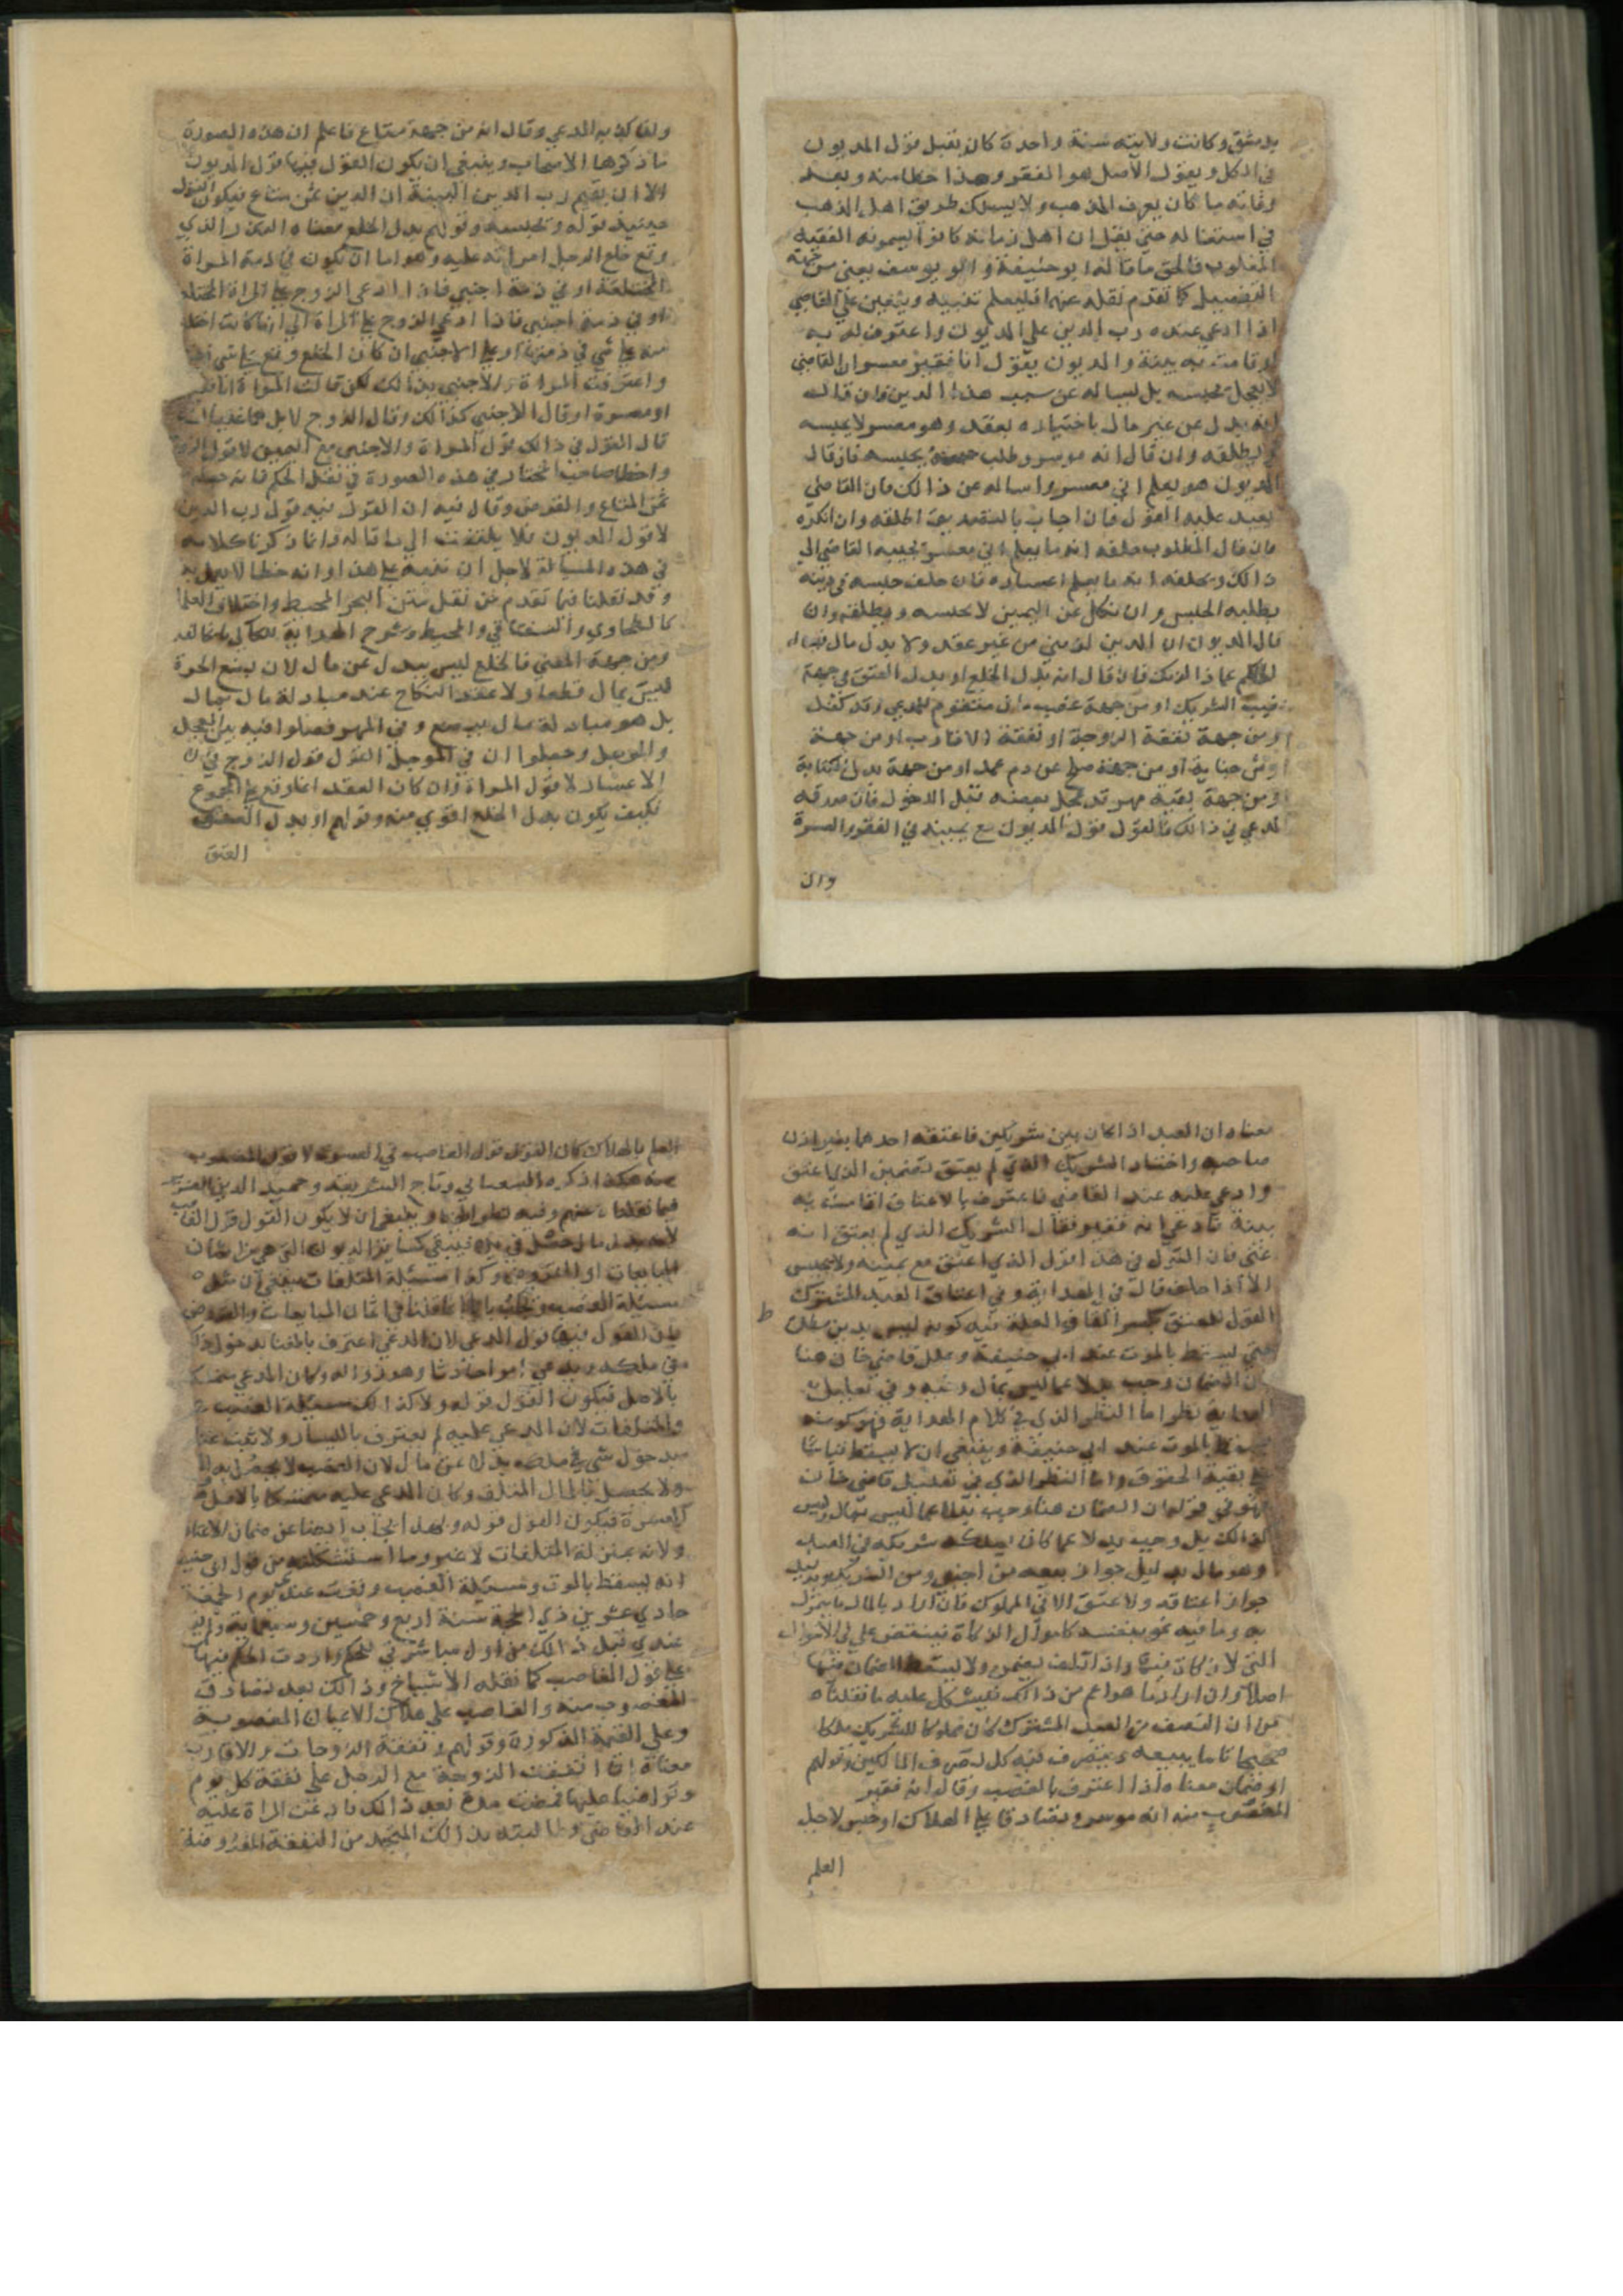 بدمشق وكانت ولايته سنة واحدة كان يقبل قول المديون
في الكل ويقول الأصل هو الفقر وهذا خطا منه وبعد
وفاته ما كان يعرف المذهب ولا يسلك طريق اهل المذهب
في اشتغاله حتى يقبل ان اهل زمانه كانوا يسمونه الفقيه
المغلوب فالحق ما قاله ابو حنيفة وابو يوسف يعني من جهة
التفصيل كما تقدم نقله عنهما فليعلم تنبيه ويتعين على القاضي
اذا ادعي عنده رب الدين علي المديون واعترف له به
او قامت به بينة والمديون يقول انا فقير معسر ان القاضي
لا يعجل بحبسه بل يساله عن سبب هذا الدين فان قال
انه بدل عن غير مال باختياره بعقد وهو معسر لا يحبسه
ويطلقه وان قال انه موسر وطلب حبسه يحبسه فان قال
المديون هو يعلم اني معسر واساله عن ذالك فان القاضي
يعيد عليه القول فان اجاب بالتصديق اطلقه وان انكره
فان قال المطلوب حلفه انه ما يعلم اني معسر يجيبه القاضي الي
ذالك ويحلفه انه ما يعلم اعساره فان حلف حبسه في دينه
بطلبه الحبس وان نكل عن اليمين لا يحبسه ويطلقه وان
قال المديون ان الدين لزمني من غير عقد ولا بدل مال
الحاكم عما ذا لزمك فان قال انه بدل الخلع او بدل العتق من جهة
نصيب الشريك او من جهة غصب مال متقوم للمدعي وقد
او من جهة نفقة الزوجة او نفقة الاقارب او من جهة
ارش جناية او من جهة صلح عن دم عمد او من جهة بدل كتابة
او من جهة بقية مهر قد عجل بعضه قبل الدخول فان صدقه
المدعي في ذالك فالقول قول المديون مع يمينه في الفقر والعسرة
وان
وان كذبه المدعي وقال انه من جهة متاع فاعلم ان هذه الصورة
ما ذكرها الاصحاب وينبغي ان يكون القول فيها قول المديون
الا ان يقيم رب الدين البينة ان الدين ثمن متاع فيكون القول
حينيذ قوله ويحبسه وقولهم بدل الخلع معناه الدين الذي
وقع خلع الرجل امراته عليه وهو اما ان يكون في ذمة المراة
المختلعة او في ذمة اجنبي فاذا ادعى الزوج على المراة المختلعة
او في ذمة اجنبي فاذا ادعى الزوج على المراة الي انها كانت اختلعت
منه على شي في ذمتها او على الاجنبي ان كان الخلع وقع على شي
واعترفت المراة والاجنبي بذالك لكن قالت المراة انا فقيرة
او معسرة او قال الاجنبي كذالك وقال الزوج لا بل هما غنيان
قال القول في ذالك قول المراة والاجنبي مع اليمين لا قول الزوج
واخطا صاحب المختار في هذه الصورة في نقل الحكم فانه جعله
ثمن المتاع والقرض وقال فيه ان القول فيه قول رب الدين
لا قول المديون فلا يلتفت الي ما قاله وانما ذكرنا كلامه
في هذه المسيالة لاجل ان ننبه على هذا وانه خطا لا يعمل به
وقد نقلنا فيما تقدم من نقل متن البحر المحيط واختلاف العلما
كالطحاوي والسغناقي والمحيط وشرح الهداية
ومن جهة المعني فالخلع ليس ببدل عن مال لان بضع الحرة
ليس بمال قطعا ولا عقد النكاح عند مبادلة مال بمال
بل هو مبادلة مال ببضع وفي المهر فصلوا فيه بين المعجل
والموجل وجعلوا ان في الموجل القول قول الزوج في
الاعسار لا قول المراة وان كان العقد انما وقع على المجموع
فكيف يكون بدل الخلع اقوي منه وقولهم او بدل العتق
العتق
معناه ان العبد اذا كان بين شريكين فاعتقه احدهما بغير اذن
صاحبه واختار الشريك الذي لم يعتق تضمين الذي اعتق
وادعي عليه عند القاضي فاعترف بالاعتاق اقامت به
بينة فادعي انه فقير فقال الشريك الذي لم يعتق انه
غني فان القول في هذا قول الذي اعتق مع يمينه ولا يحبس
الا اذا حلف قال في الهداية وفي اعتاق العبد المشترك
القول للمعتق والعلة فيه كونه ليس بدين مطلق
حتي يسقط بالموت عند ابي حنيفة وعلل قاضي خان هنا
بان الضمان وجب بدلا عما ليس بمال وفيه وفي تعليل
الهداية نظر اما النظر الذي في كلام الهداية فهو كونه
يسقط بالموت عند ابي حنيفة وينبغي ان لا يسقط قياسا
على بقية الحقوق واما النظر الذي في تعليل قاضي خان
فهو في قوله ان الضمان هنا وجب بدلا عما ليس بمال وليس
كذالك بل وجب بدلا عما كان يملكه شريكه في العبد
وهو مال بدليل جواز بيعه من اجنبي ومن الشريك وبدليل
جواز اعتاقه ولا عتق الا في المملوك فان اراد بالمال ما يتمول
به وما فيه نمو بنفسه كاموال الزكاة فينتقض علي في الاموال
التي لا زكاة فيها واذا اتلفت يضمن ولا يسقط الضمان فيها
اصلا وان اراد ما هو اعم من ذالك فيشكل عليه ما نقلناه
من ان النصف من العبد المشترك كان مملوكا للشريك ملكا
صحيحا تاما يبيعه ويتصرف فيه كل تصرف المالكين وقولهم
او ضمان معناه اذا اعترف بالغصب وقال انه فقير
المغصوب منه انه موسر وتصادقا على الهلاك او حبس لاجل
العلم
العلم بالهلاك كان القول قول الغاصب في العسرة لا قول المغصوب
منه هكذا ذكره السغناقي وتاج الشريعة وحميد الدين الضرير
فيما نقلناه عنهم وفيه نظر ايضا وينبغي ان لا يكون القول قول الغاصب
لانه بدل مال حصل في يده فيبقي كساير الديون التي هي من اثمان
المبايعات او القروض وكذا مسيلة المتلفات ينبغي ان
مسيلة الغصب في اثمان المبايعات والقروض
بان القول فيها قول المدعي لان المدعي اعترف بالغنا بدخول ذلك
في ملكه ويدعي امرا حادثا وهو زواله وكان المدعي متمسكا
بالاصل فيكون القول قوله ولا كذالك مسيلة الغصب
والمتلفات لان المدعي عليه لم يعترف باليسار ولا ثبت غناه
بدخول شي في ملكه بدلا عن مال لان الغصب لا يحصل به
ولا يحصل بالمال المتلف وكان المدعي عليه متمسكا بالاصل
كالعسرة فيكون القول قوله ولهذا الجواب ايضا عن ضمان الاعتاق
ولانه بمنزلة المتلفات لا غير وما استشكلته من قول ابي حنيفة
انه يسقط بالموت ومسيلة الغصب وقعت عندي يوم الجمعة
حادي عشرين ذي الحجة سنة اربع وخمسين وسبعماية ولم
عندي قبل ذالك من اول مباشرتي للحكم واردت الحكم فيها
على قول الغاصب كما نقله الاشياخ وذالك بعد تصادق
المغصوب منه والغاصب علي هلاك الاعيان المغصوبة
وعلي القيمة المذكورة وقولهم ونفقة الزوجات والاقارب
معناه اذا اتفقت الزوجة مع الرجل علي نفقة كل يوم
وتراضيا عليها فمضت مدة بعد ذالك فادعت المراة عليه
عند القاضي وطالبته بذالك المتجمد من النفقة المفروضة